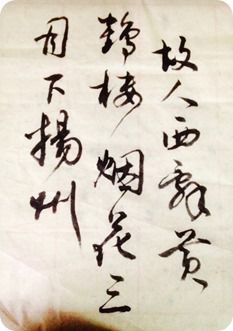 故人西辞黄
鹤楼烟花三
月下揚州